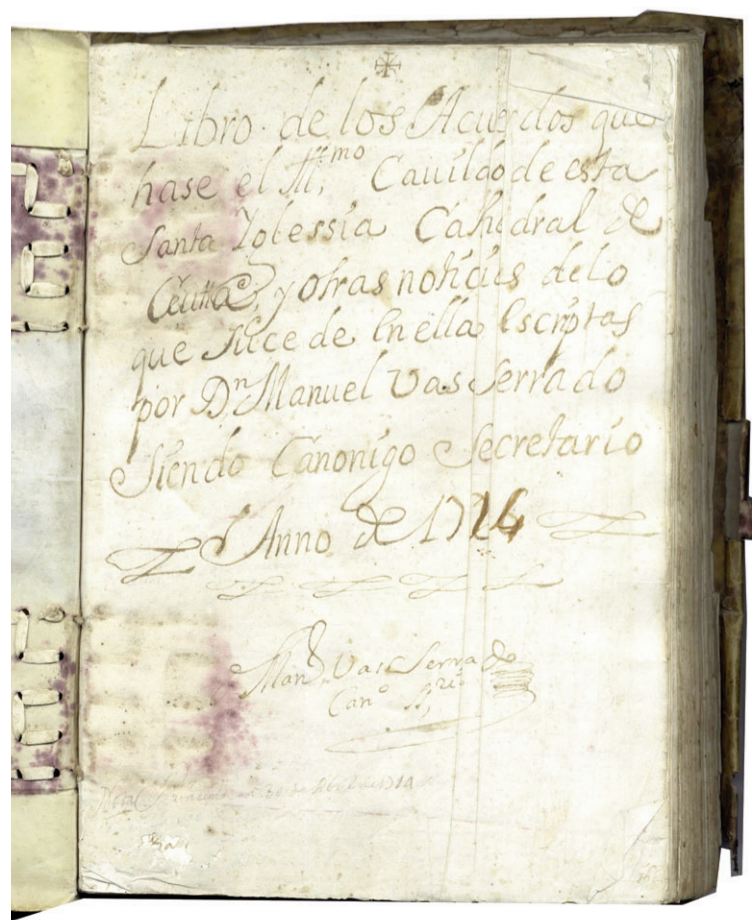 Libro de los Acuerdos que
hase el Ill.mo Cavildo de esta
Santa Yglessia Cathedral de
Ceutta, y otras noticias de lo
que sucede en ella Escriptas
por Dn. Manuel Vas Serrado
Siendo Canonigo Secretario
Anno de 1714
Manl. Vas Serrado
Can.o S.rio
Nota